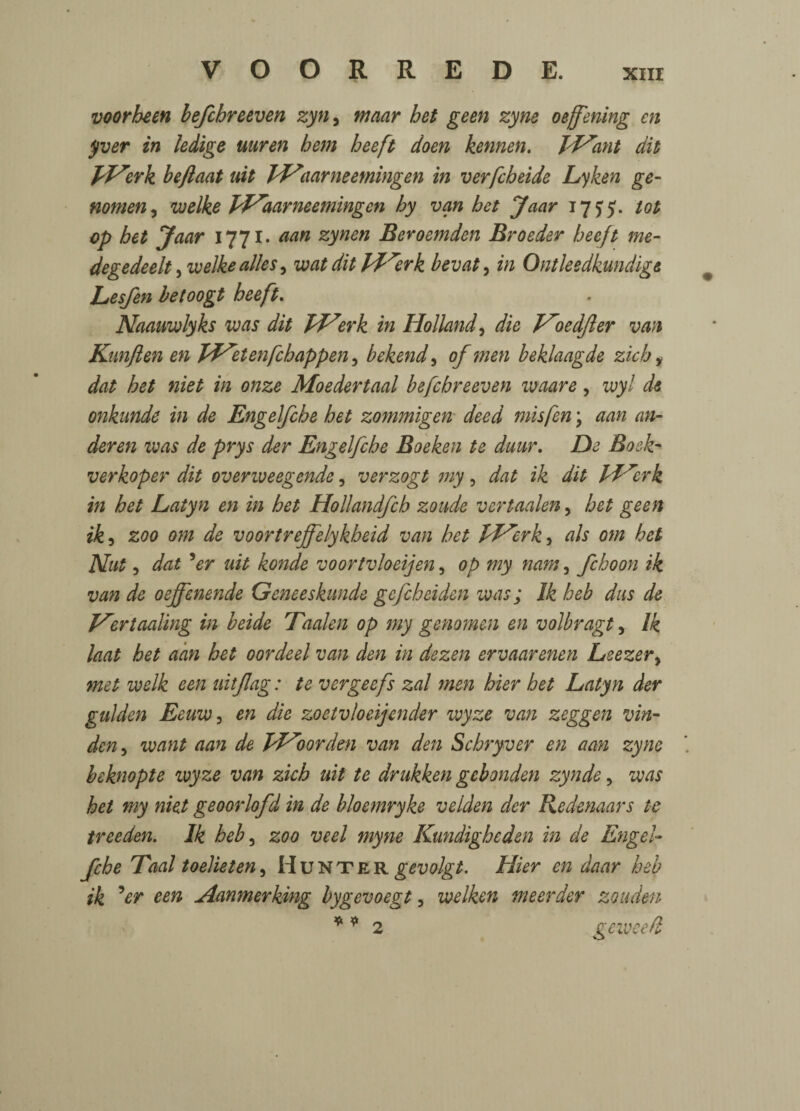 VOORREDE. XIII
voorheen beſchreeven zyn, maar het geen zyne oeffening en
yver in ledige uuren hem heeft doen kennen. Want dit
Werk beſtaat uit Waarneemingen in verſcheide Lyken ge-
nomen, welke Waarneemingen hy van het Jaar 1755. tot
op het Jaar 1771. aan zynen Beroemden Broeder heeft me-
degedeelt, welke alles, wat dit Werk bevat, in Ontleedkundige
Lesſen betoogt heeft.
Naauwlyks was dit Werk in Holland, die Voedſter van
Kunſten en Wetenſchappen, bekend, of men beklaagde zich,
dat het niet in onze Moedertaal beſchreeven waare, wyl de
onkunde in de Engelſche het zommigen deed misſen; aan an-
deren was de prys der Engelſche Boeken te duur. De Boek-
verkoper dit overweegende, verzogt my, dat ik dit Werk
in het Latyn en in het Hollandſch zoude vertaalen, het geen
ik, zoo om de voortreffelykheid van het Werk, als om het
Nut, dat 'er uit konde voortvloeijen, op my nam, ſchoon ik
van de oeffenende Geneeskunde geſcheiden was; Ik heb dus de
Vertaaling in beide Taalen op my genomen en volbragt, Ik
laat het aan het oordeel van den in dezen ervaarenen Leezer,
met welk een uitſlag: te vergeefs zal men hier het Latyn der
gulden Eeuw, en die zoetvloeijender wyze van zeggen vin-
den, want aan de Woorden van den Schryver en aan zyne
beknopte wyze van zich uit te drukken gebonden zynde, was
het my niet geoorlofd in de bloemryke velden der Redenaars te
treeden. Ik heb, zoo veel myne Kundigheden in de Engel-
ſche Taal toelieten, HUNTER gevolgt. Hier en daar heb
ik 'er een Aanmerking bygevoegt, welken meerder zouden
** 2 geweeſt